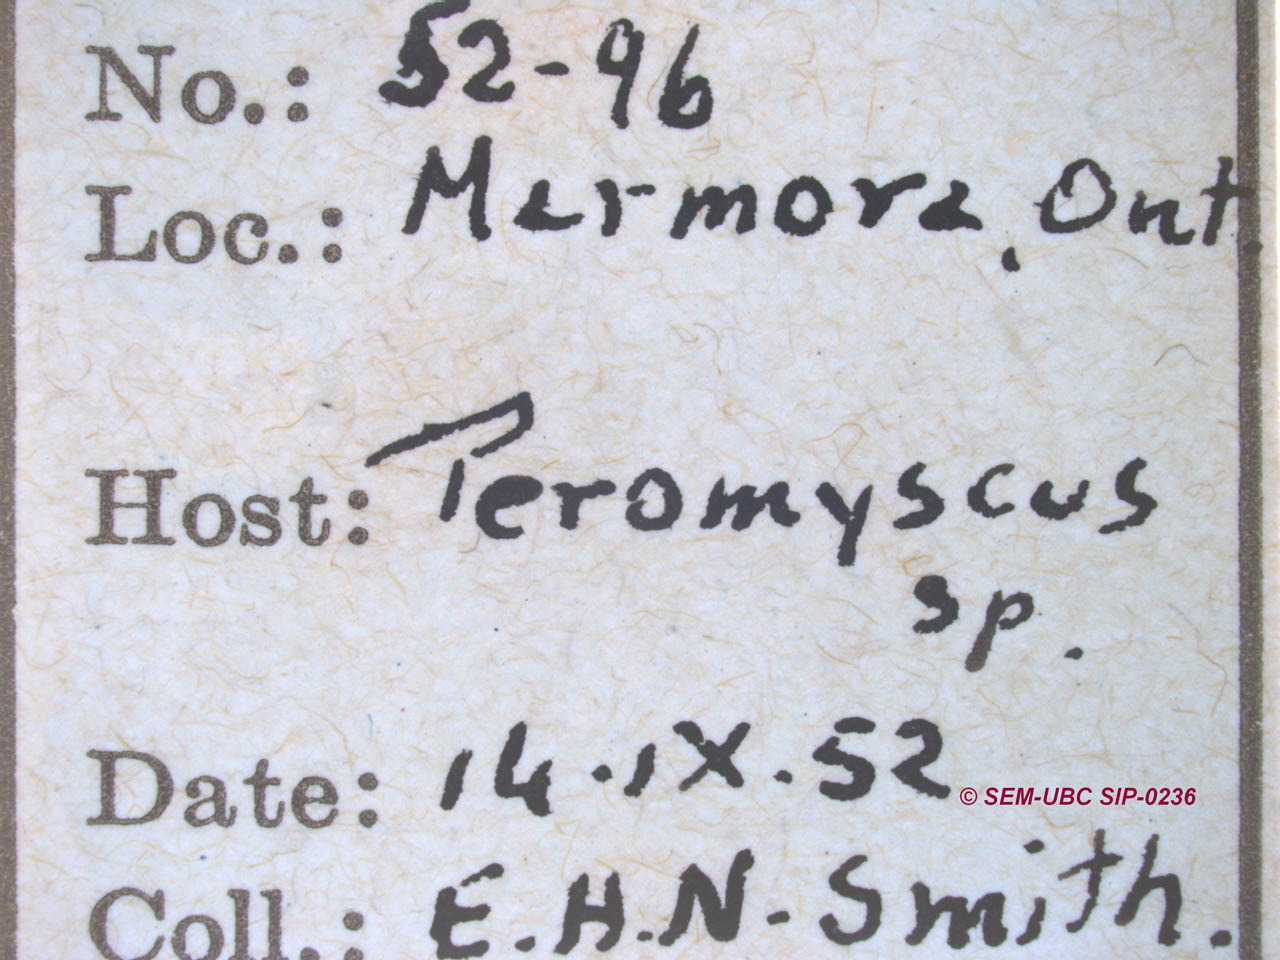 No.: 52-96
Loc.: Marmora, Ont.
Host: Peromyscus
sp.
Date: 14.IX.52
© SEM-UBC SIP-0236
Coll.: E.H.N-Smith.